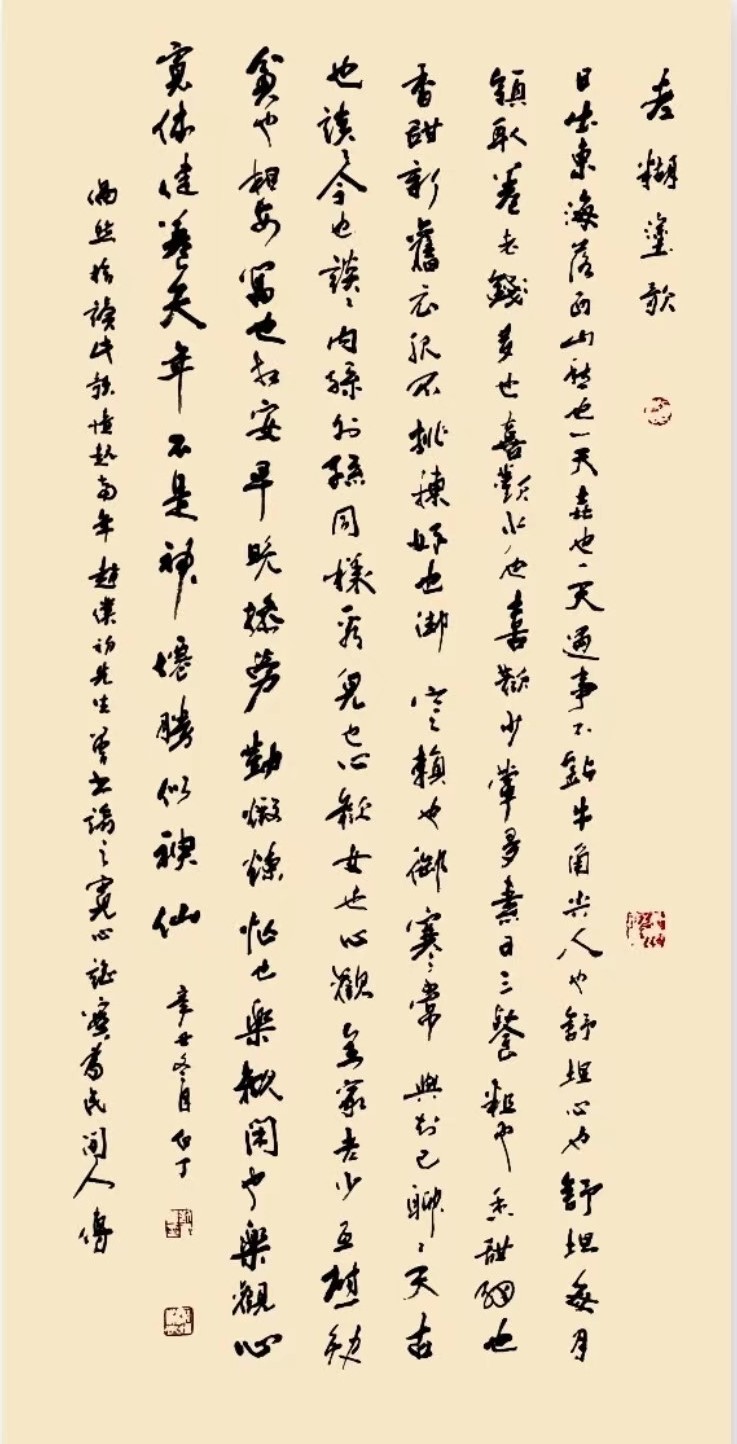 老糊塗歌
日出東海落西山愁也一天喜也一天遇事不鑽牛角尖人也舒坦心也舒坦每月
領取養老錢多也喜歡少也喜歡少葷多素日三餐粗也香甜細也
香甜新舊衣服不挑揀好也御寒賴也御寒常與知己聊聊天古
也談談今也談談內孫外孫同樣看兒也心歡女也心歡全家老少互慰勉
貧也相安富也相安早晚操勞勤鍛煉忙也樂觀閑也樂觀心
寬体健養天年不是神僊勝似神仙 辛丑冬月白丁
偶然拾讀此歌憶起當年趙樸初先生曾書之寬心謠實為民間人傳